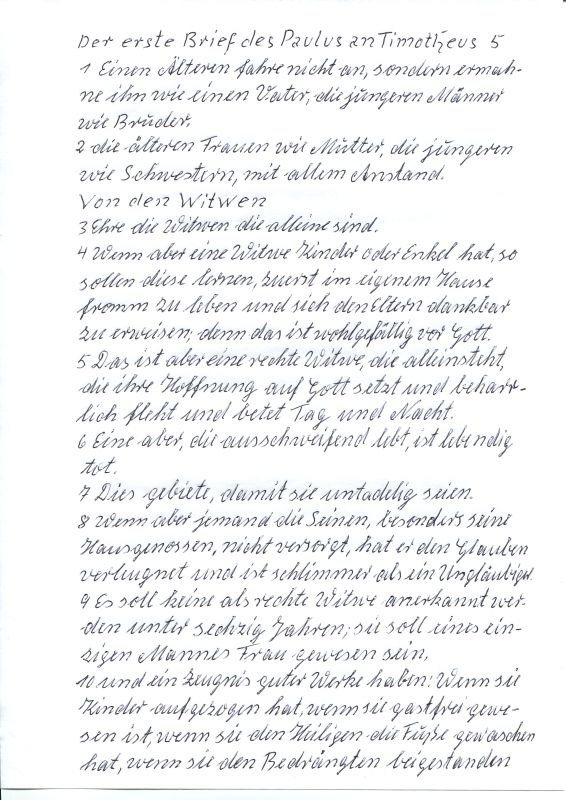 Der erste Brief des Paulus an Timotheus 5
1 Einen Älteren fahre nicht an, sondern ermah-
ne ihn wie einen Vater, die jüngeren Männer
wie Brüder,
2 die älteren Frauen wie Mütter, die jüngeren
wie Schwestern, mit allem Anstand.
Von den Witwen
3 Ehre die Witwen die alleine sind.
4 Wenn aber eine Witwe Kinder oder Enkel hat, so
sollen diese lernen, zuerst im eigenem Hause
fromm zu leben und sich den Eltern dankbar
zu erweisen; denn das ist wohlgefällig vor Gott.
5 Das ist aber eine rechte Witwe, die alleinsteht,
die ihre Hoffnung auf Gott setzt und beharr-
lich fleht und betet Tag und Nacht.
6 Eine aber, die ausschweifend lebt, ist lebendig
tot.
7 Dies gebiete, damit sie untadelig seien.
8 Wenn aber jemand die Seinen, besonders seine
Hausgenossen, nicht versorgt, hat er den Glauben
verleugnet und ist schlimmer als ein Ungläubiger.
9 Es soll keine als rechte Witwe anerkannt wer-
den unter sechzig Jahren; sie soll eines ein-
zigen Mannes Frau gewesen sein,
10 und ein Zeugnis guter Werke haben: Wenn sie
Kinder aufgezogen hat, wenn sie gastfrei gewe-
sen ist, wenn sie den Heiligen die Füße gewaschen
hat, wenn sie den Bedrängten beigestanden